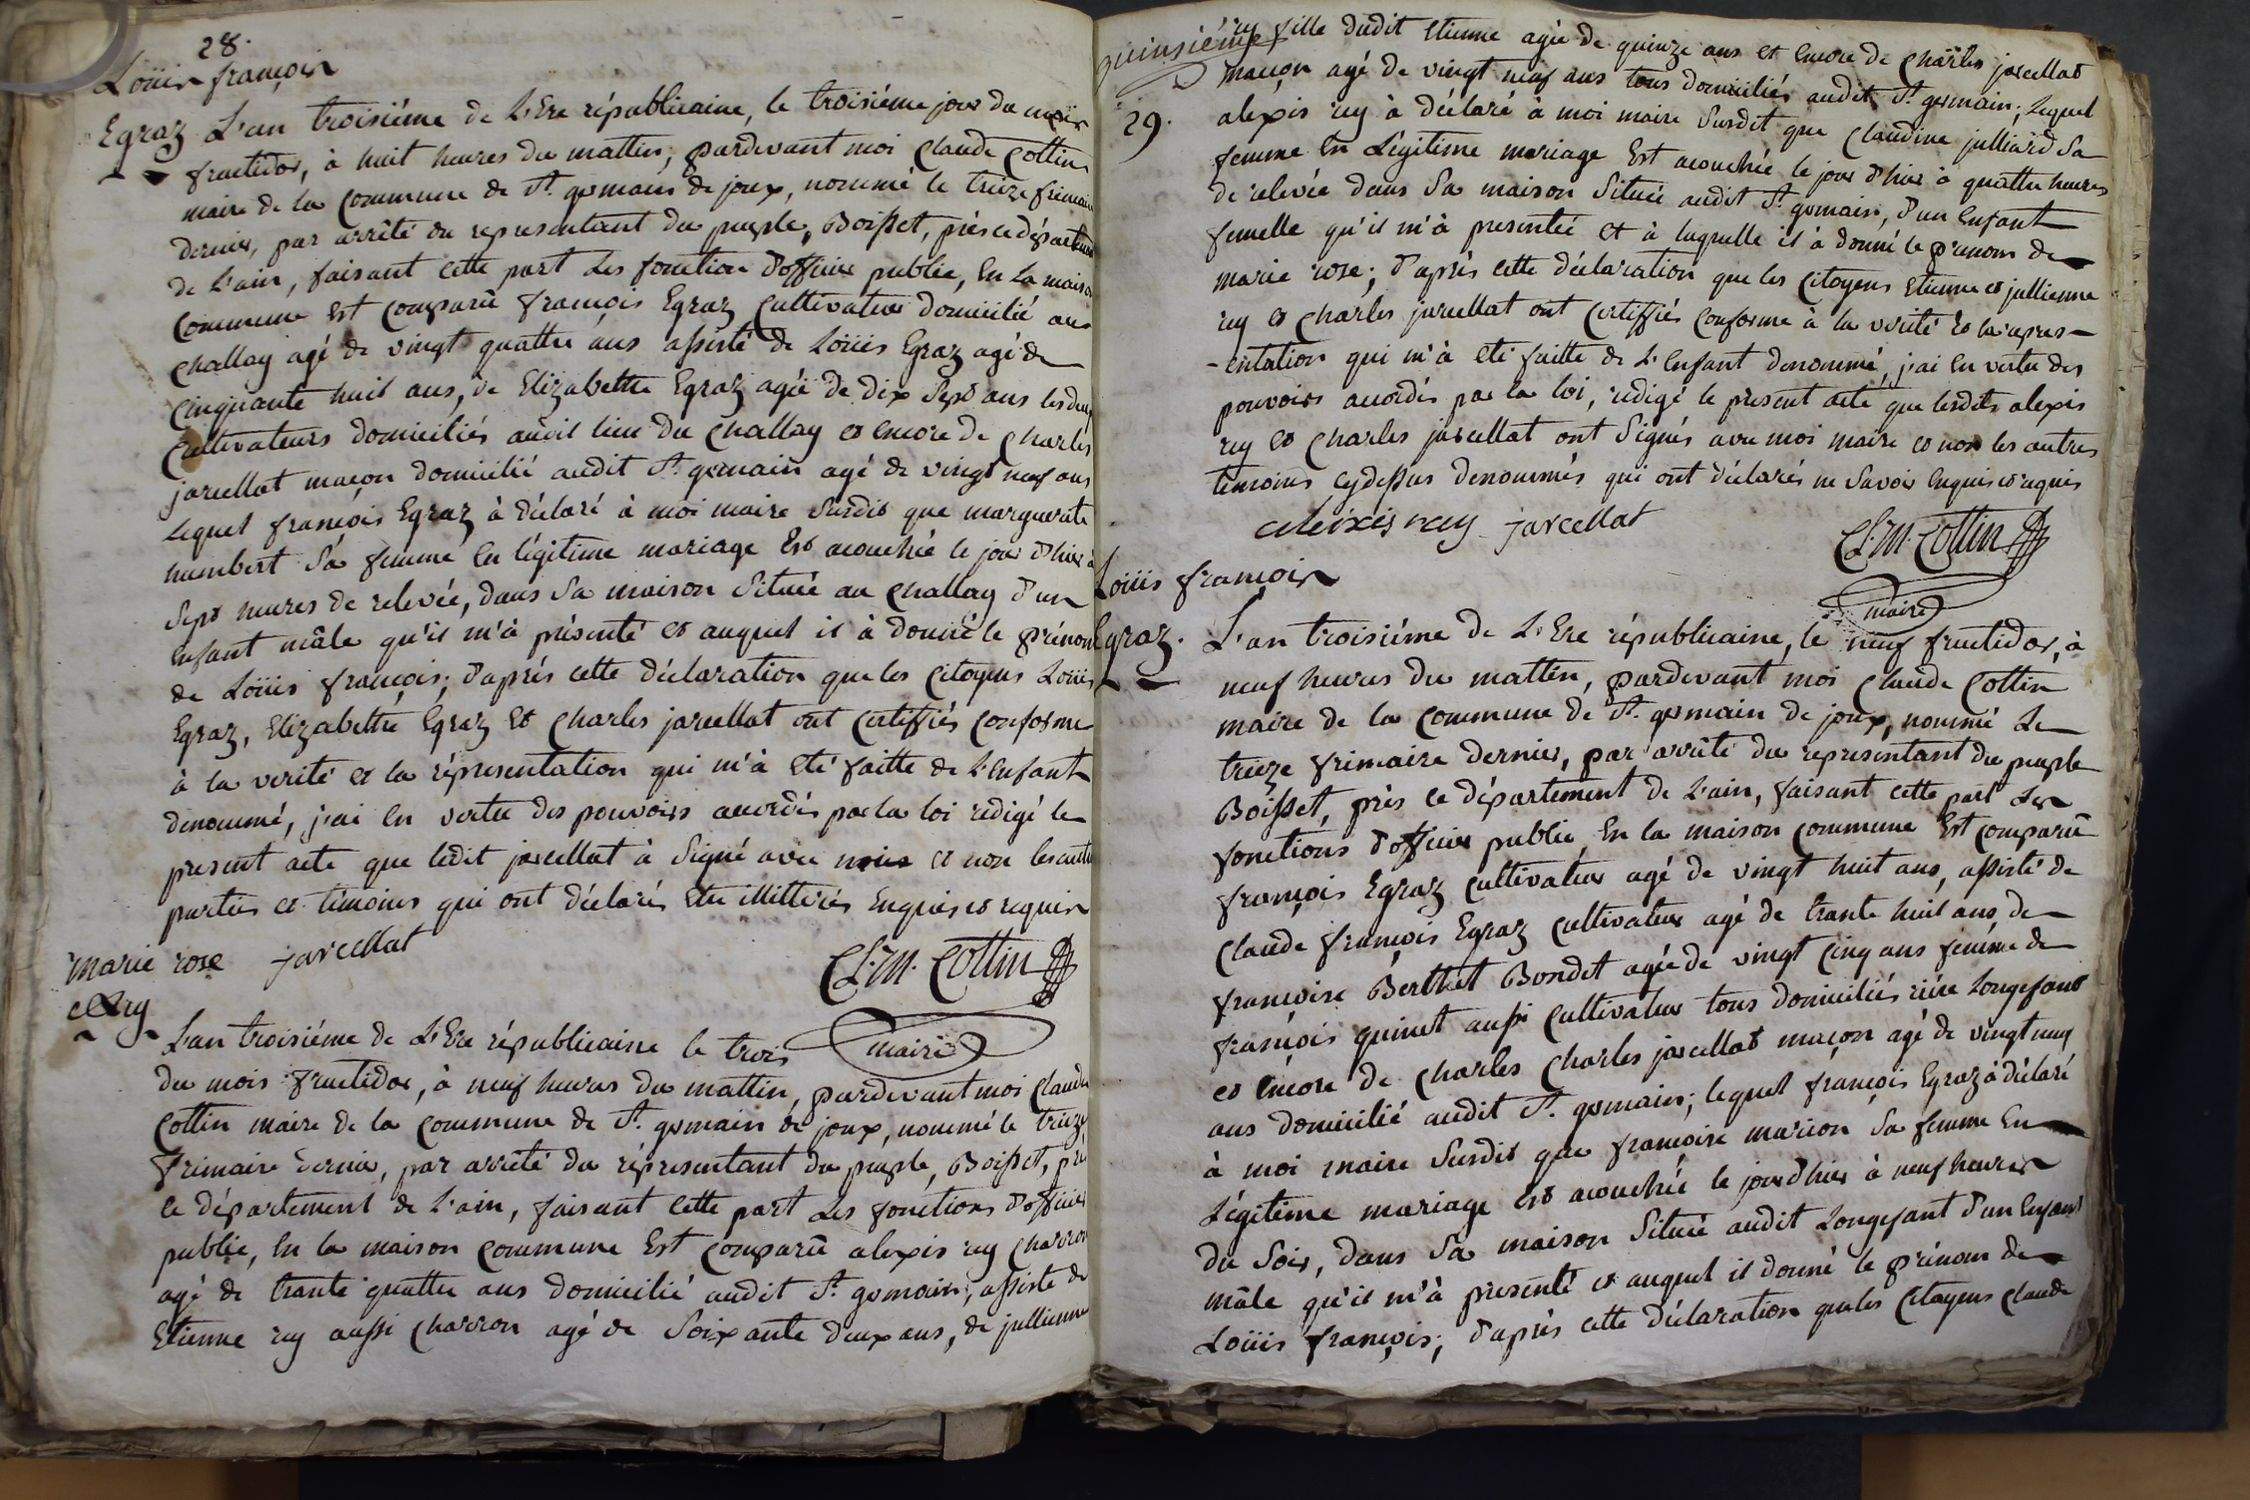 28.
Loüis françois
Egraz L'an troisiéme de L'Ere républicaine, le troisiéme jour du mois
fructidor, à huit heures du mattin, pardevant moi Claude Cottin
maire de la Commune de St. germain de joux, nommé le treize frimaire
dernier, par arrêté du representant du peuple, Boisset, près ce département
de L'ain, faisant cette part les fonction d'officier public, En La maison
Commune Est Comparû françois Egraz Cultivateur domicilié au
Challay agé de vingt quattre ans assisté de Loüis Egraz agé de
Cinquante huit ans, de Elizabethe Egraz agée de dix Sept ans les deux
Cultivateurs domiciliés audit lieu du Challay et encore de Charles
jarcellat maçon domicilié audit St. germain agé de vingt neuf ans
Lequel françois Egraz à déclaré à moi maire Susdit que margueritte
humbert Sa femme En légitime mariage Est acouchée le jour d'hier à
Sept heures de relevée, dans Sa maison Située au Challay d'un
Enfant mâle qu'il m'à présenté et auquel il à donné le prénom
de Loüis françois; d'aprés cette déclaration que les Citoyens Loüis
Egraz, Elizabethe Egraz Et Charles jarcellat ont Certiffiés Conforme
à la verité et la répresentation qui m'à eté faitte de L'Enfant
denommé, j'ai En vertu des pouvoirs accordés par la loi rédigé le
present acte que ledit jarcellat à Signé avec moi et non les autre
parties et témoins qui ont déclarés Etre illittérés Enquis et requis
jarcellat
Cl. M. Cottin
maire
Marie rose
Rey
L'an troisiéme de L'Ere républicaine le trois
du mois fructidor, à neuf heures du mattin, pardevant moi Claude
Cottin maire de la Commune de St. germain de joux, nommé le treize
frimaire dernier, par arrêté du répresentant du peuple, Boisset, près
ce département de L'ain, faisant cette part Les fonctions d'officier
public, En la maison Commune Est Comparû alexis rey Charron
agé de trante quattre ans domicilié audit St. germain; assisté de
Etienne rey aussi Charron agé de Soixante deux ans, de jullienne
quinsiéme
rey fille dudit Etienne agée de quinze ans et Encore de Charles jarcellat
maçon agé de vingt neuf ans tous domiciliés audit St. germain; Lequel
29. alexis rey à déclaré à moi maire Susdit que Claudine julliard Sa
femme En Légitime mariage Est acouchée le jour d'hier à quattre heures
de relevée dans Sa maison Située audit St. germain, d'un Enfant
femelle qu'il m'à presentée et à laquelle il à donné le prenom de
marie rose; d'aprés cette déclaration que les Citoyens Etienne et jullienne
rey et Charles jarcellat ont Certiffiés Conforme à la vérité et la repres-
-entation qui m'à eté faitte de L'Enfant denommé, j'ai En vertu des
pouvoirs accordés par la loi, rédigé le present acte que lesdits alexis
rey et Charles jarcellat ont Signés avec moi maire et non les autres
témoins cy dessus denommés qui ont déclarés ne Savoir Enquis et requis
aleixis rey jarcellat
Cl. M. Cottin
maire
Loüis françois
Egraz.
L'an troisiéme de L'Ere républicaine, le neuf fructidor, à
neuf heures du mattin, pardevant moi Claude Cottin
maire de la Commune de St. germain de joux, nommé Le
treize frimaire dernier, par arrêté du representant du peuple
Boisset, près ce département de L'ain, faisant cette part Les
fonctions d'officier public, En la maison Commune Est Comparû
françois Egraz Cultivateur agé de vingt huit ans, assisté de
Claude françois Egraz Cultivateur agé de trante huit ans, de
françoise Berthet Bondet agée de vingt Cinq ans femme de
françois quinet aussi Cultivateur tous domiciliés rière Longefant
et Encore de Charles Charles jarcellat maçon agé de vingt neuf
ans domicilié audit St. germain; lequel françois Egraz à déclaré
à moi maire Susdit que françoise marion Sa femme En
Légitime mariage est acouchée le jour d'hier à neuf heures
du Soir, dans Sa maison Située audit Longefant d'un Enfant
mâle qu'il m'à presenté et auquel il donné le prénom de
Loüis françois; d'aprés cette déclaration que les Citoyens Claude